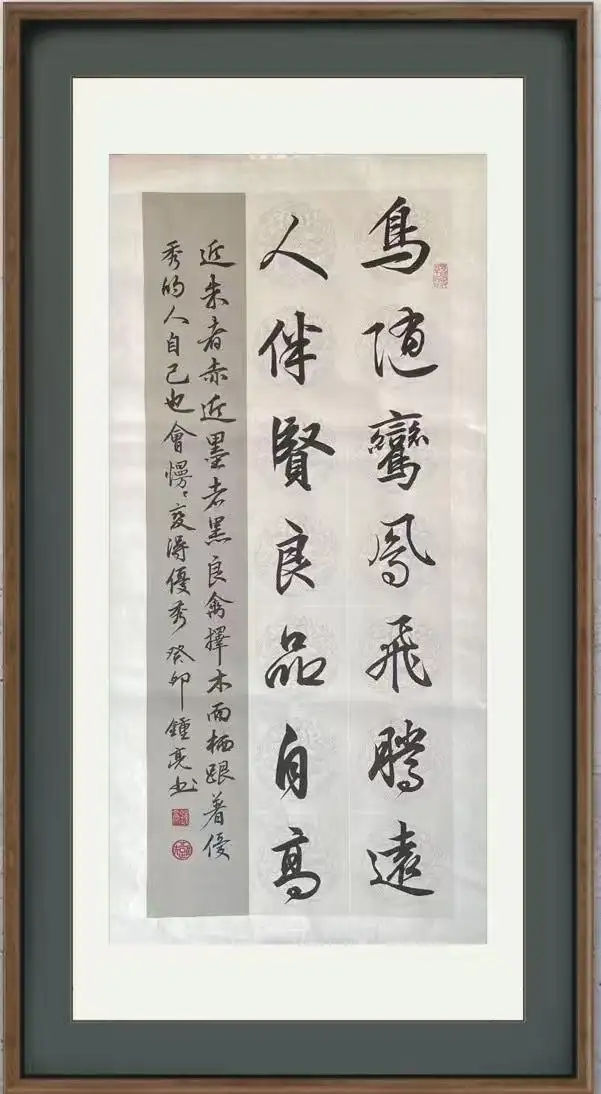 鳥随鸞鳳飛騰遠
人伴賢良品自高
近朱者赤近墨者黑良禽擇木而栖跟着優
秀的人自己也會慢慢變得優秀 癸卯鍾亮书